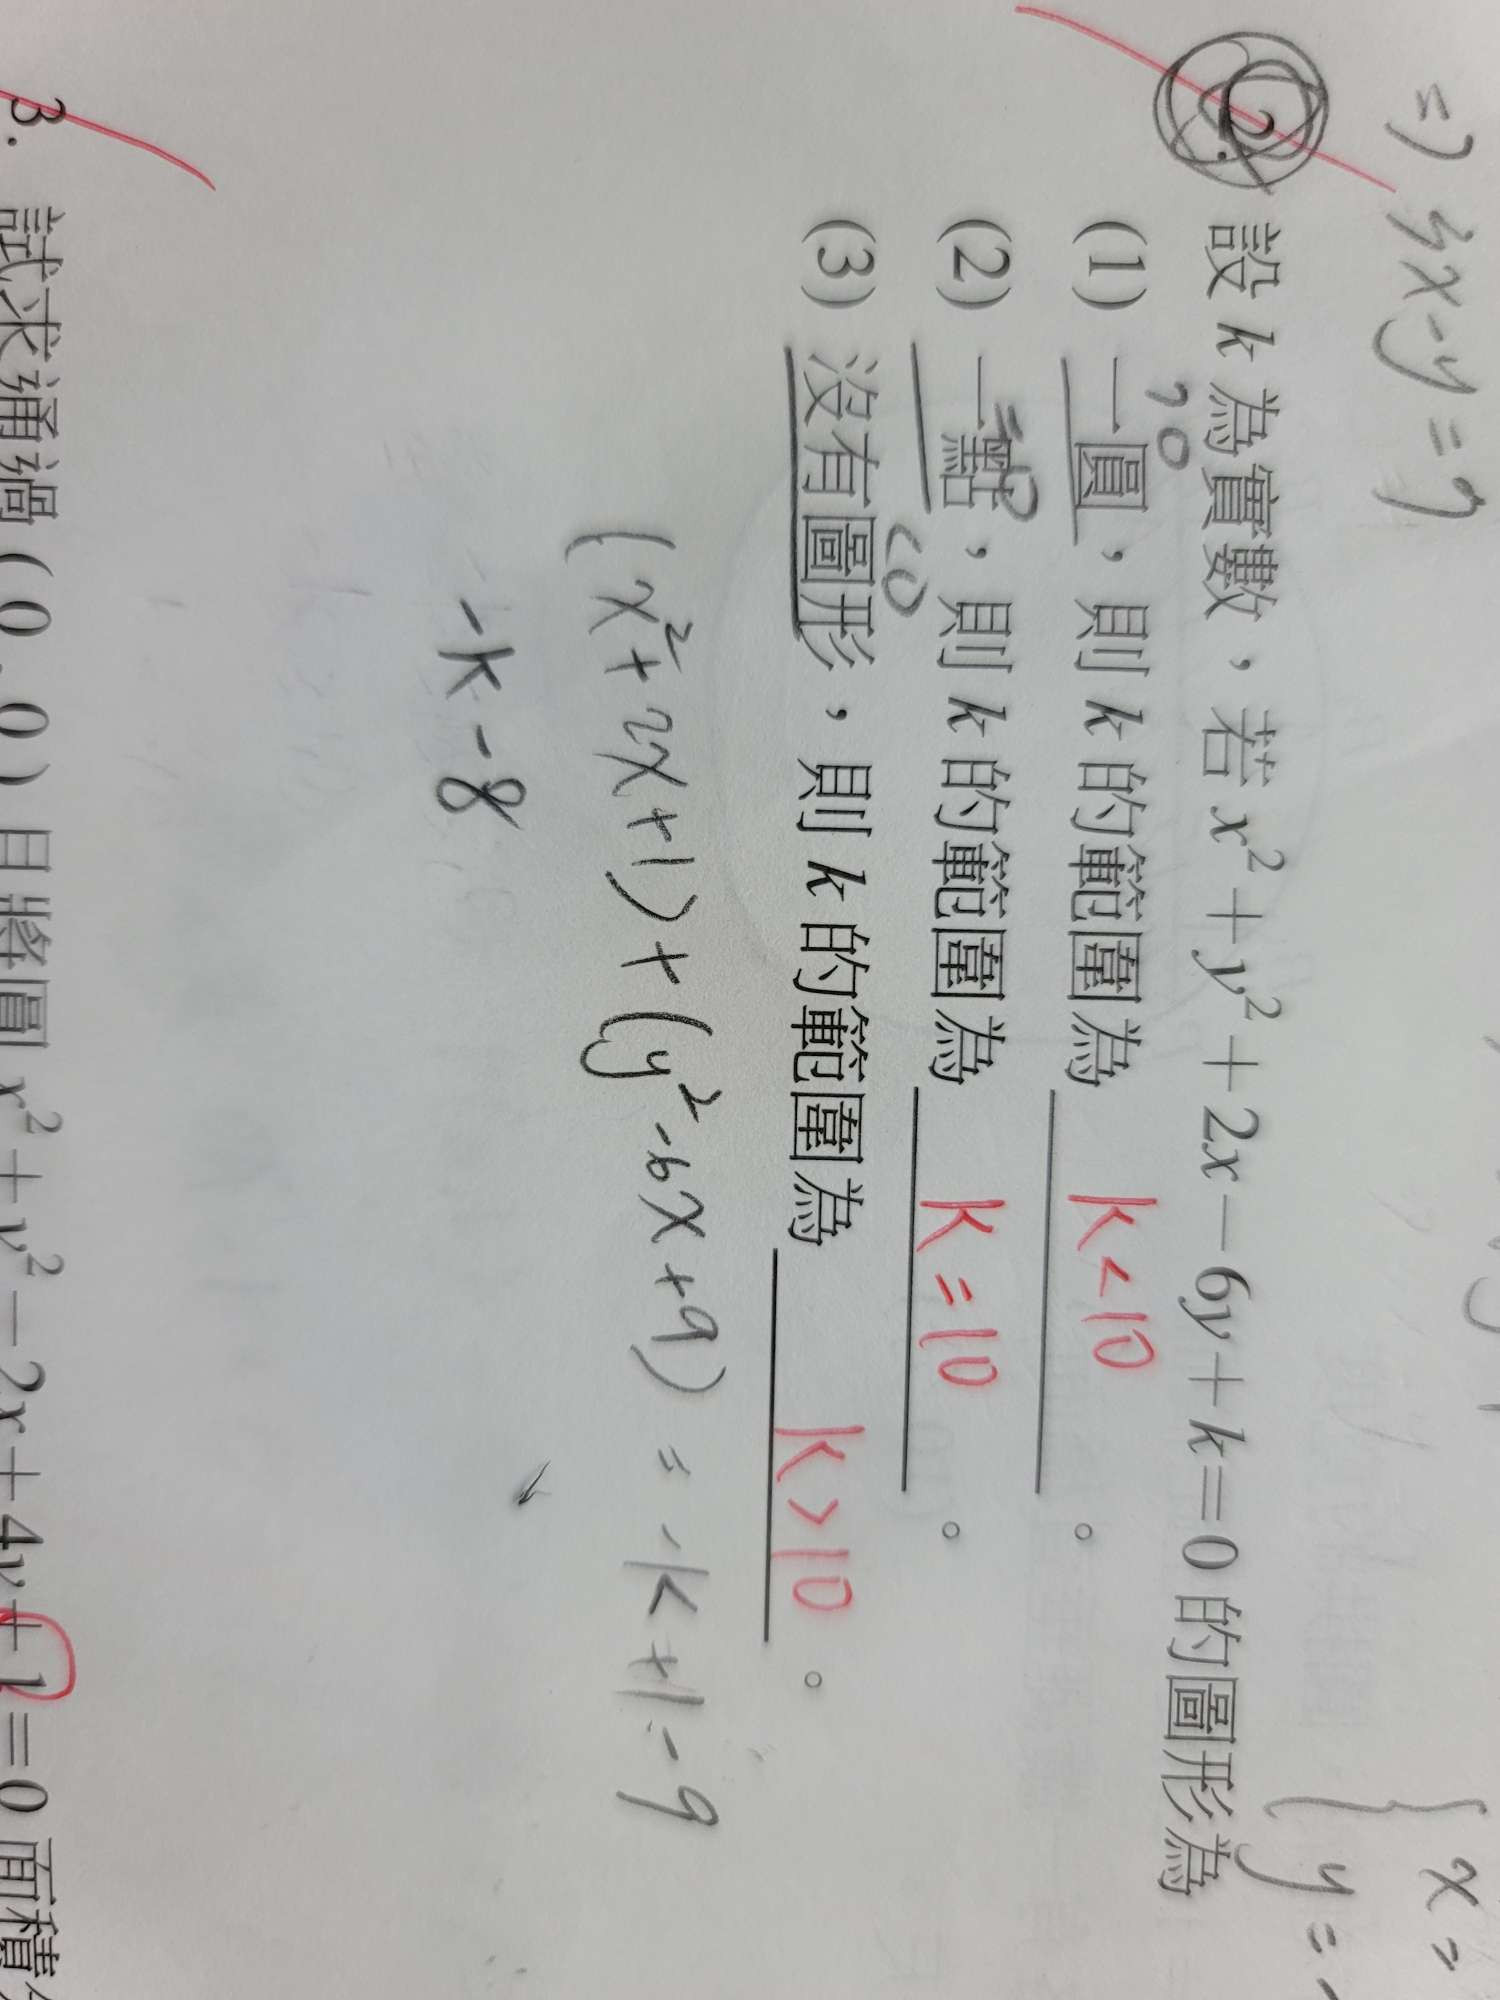 =) 3x-y=7
{ x=
y=-
2. 設 k 為實數，若 x²+y²+2x-6y+k=0 的圖形為
>0
(1) 一圓，則 k 的範圍為 k<10 。
=0
(2) 一點，則 k 的範圍為 k=10 。
<0
(3) 沒有圖形，則 k 的範圍為 k>10 。
(x²+2x+1)+(y²-6x+9)=-k+1-9
-k-8
3. 試求通過 (0,0) 且將圓 x²+y²-2x+4y+1=0 面積